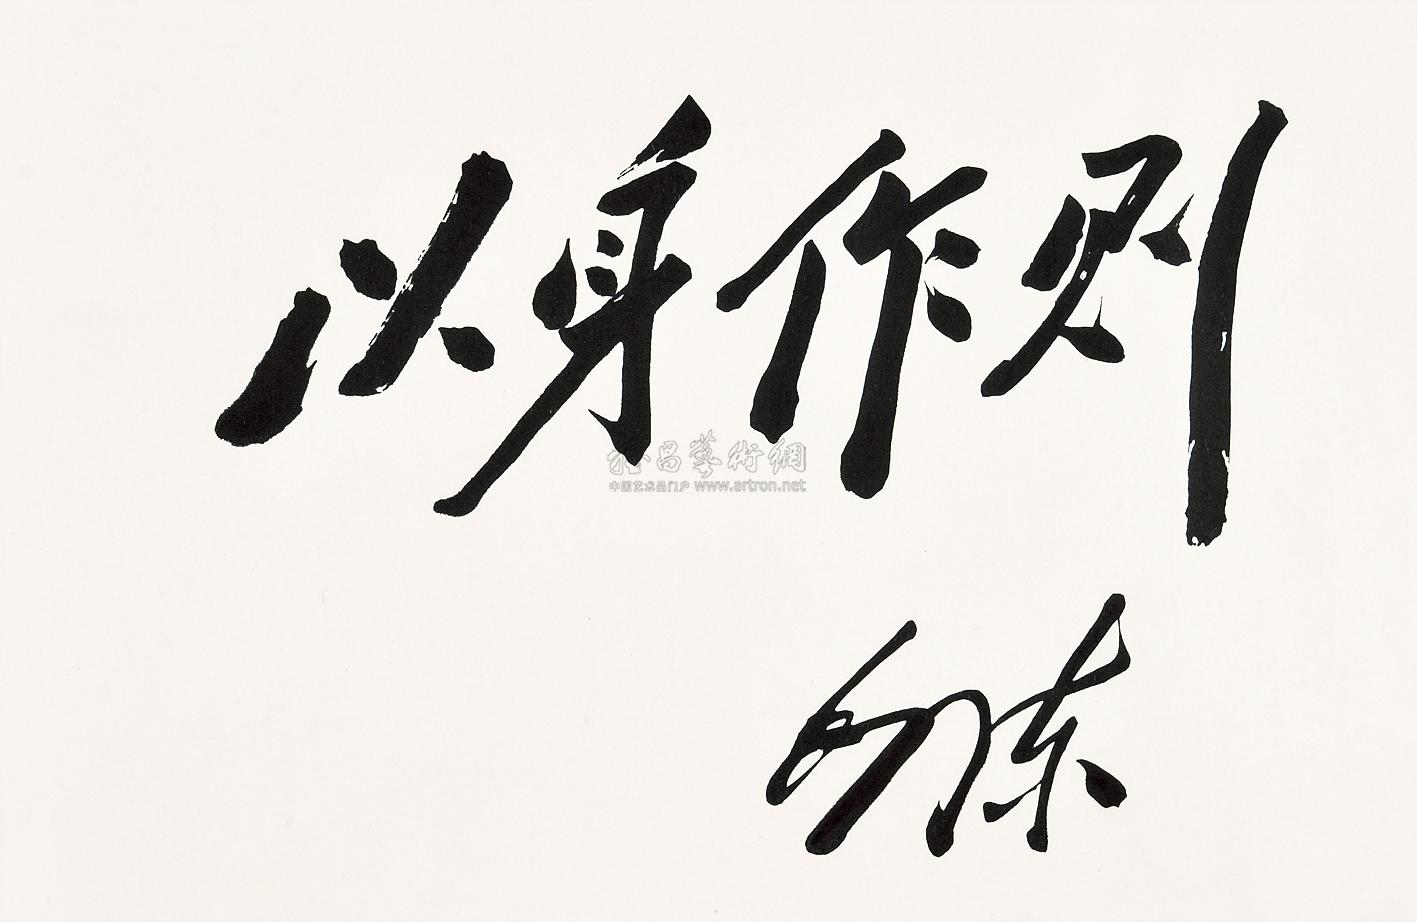 以身作则
雅昌藝術網
中国艺术品门户 www.artron.net